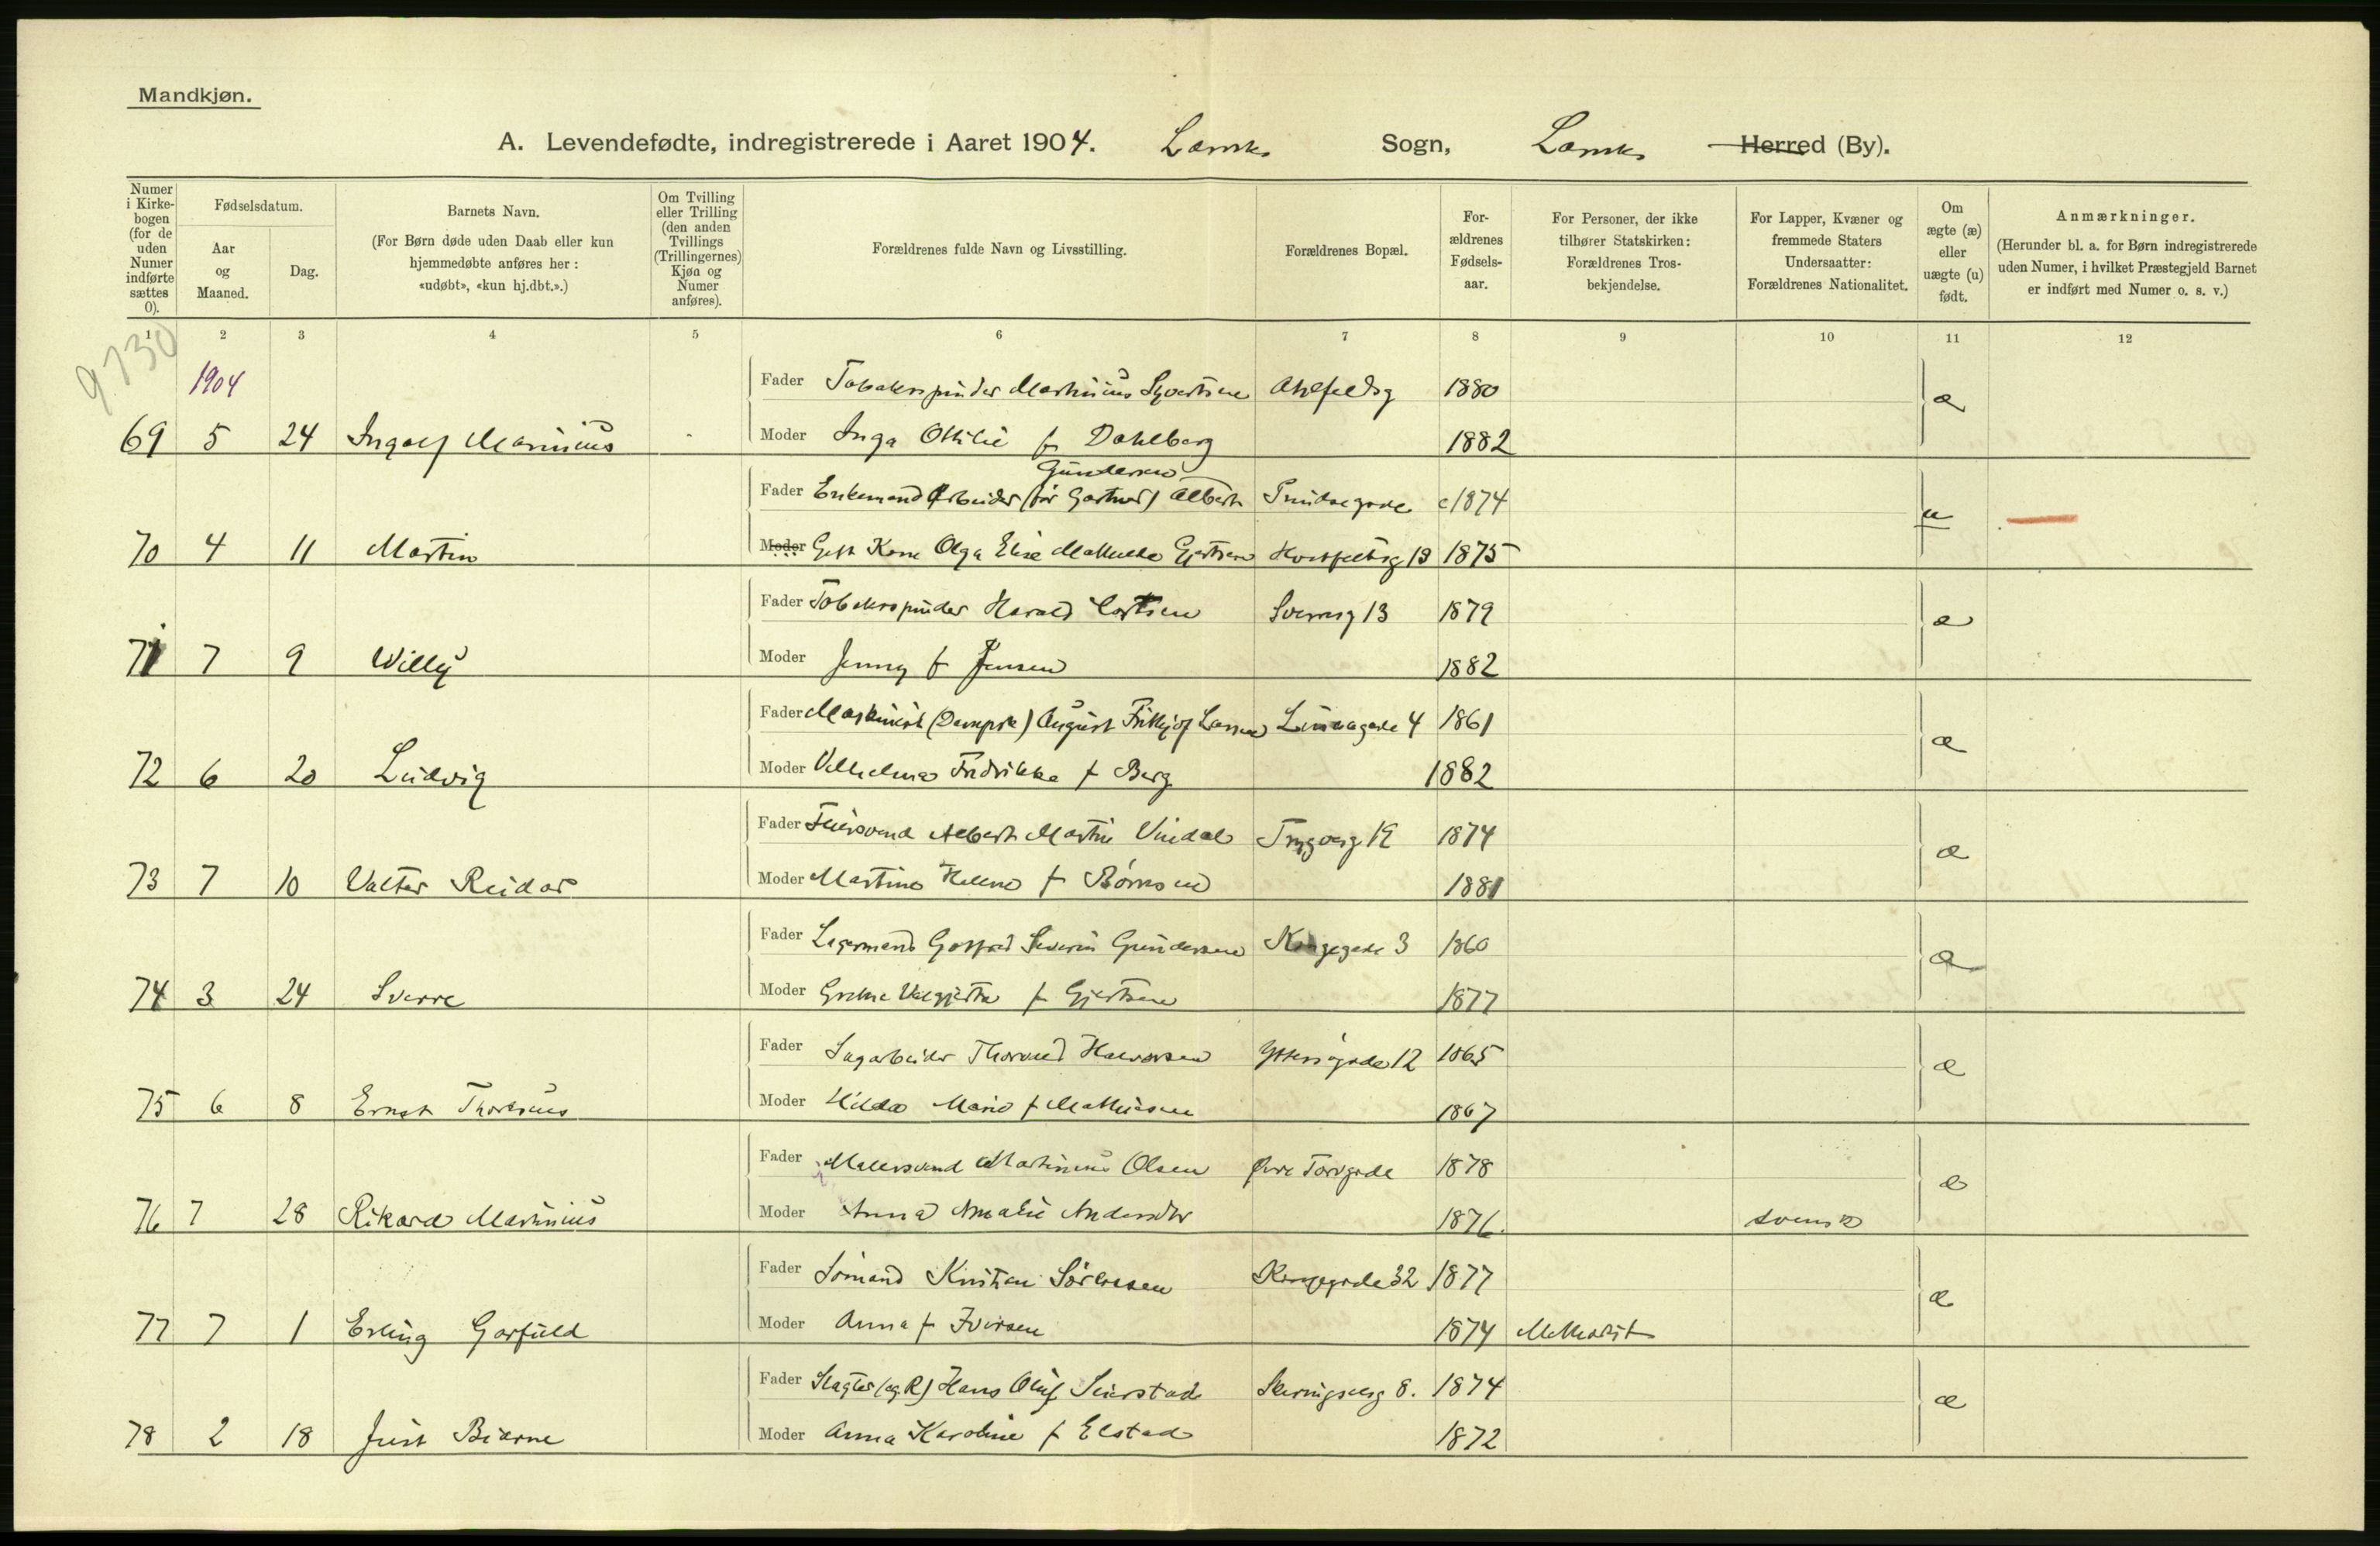 Mandkjøn.
A. Levendefødte, indregistrerede i Aaret 1904. Larviks Sogn, Larviks Herred (By).
Numer i Kirke-bogen (for de uden Numer indførte sættes 0).
Fødselsdatum.
Aar og Maaned.
Dag.
Barnets Navn.
(For Børn døde uden Daab eller kun hjemmedøbte anføres her: «udøbt», «kun hj.dbt.».)
Om Tvilling eller Trilling (den anden Tvillings (Trillingernes) Kjøn og Numer anføres).
Forældrenes fulde Navn og Livsstilling.
Forældrenes Bopæl.
For-ældrenes Fødsels-aar.
For Personer, der ikke tilhører Statskirken: Forældrenes Tros-bekjendelse.
For Lapper, Kvæner og fremmede Staters Undersaatter: Forældrenes Nationalitet.
Om ægte (æ) eller uægte (u) født.
Anmærkninger.
(Herunder bl. a. for Børn indregistrerede uden Numer, i hvilket Præstegjeld Barnet er indført med Numer o. s. v.)
1 2 3 4 5 6 7 8 9 10 11 12
9730
1904
Fader Tobakspinder Martinius Syvertsen 1880 æ
69 5 24 Ingolf Marinius Moder Inga Otilie f Dahlberg 1882
Gundersen
Fader Enkemand Arbeider (før Gartner) Albert c 1874 u
70 4 11 Martin Moder Gift Kone Olga Elise Mathilde Gjertsen 1875
Fader Tobakspinder Harald 13 1879 æ
71 7 9 Willy Moder Jenny f Jensen 1882
Fader Maskinist (Dampsk) August Fritjof Larsen 4 1861 æ
72 6 20 Ludvig Moder Vilhelmine Fredrikke f Berg 1882
Fader Albert Martin Vindal Trygvesg 19 1874 æ
73 7 10 Valter Reidar Moder Martine Helene f 1881
Fader Lagermand Severin Gundersen Kongegade 3 1860 æ
74 3 24 Sverre Moder f Gjertsen 1877
Fader Sagarbeider Halvorsen 12 1865 æ
75 6 8 Ernst Moder Hilda Marie f Mathisen 1867
Fader Malersvend Martinius Olsen Øvre Torvgade 1878 æ
76 7 28 Rikard Martinius Moder Anna Amalie 1876. svensk
Fader Sömand Kristian Sörensen Kongegade 32 1877 æ
77 7 1 Erling Garfield Moder Anna f Iversen 1874 Methodist
Fader Slagter Hans Oluf Seierstad 8. 1874 æ
78 2 18 Just Bjarne Moder Anna Karoline f Elstad 1872